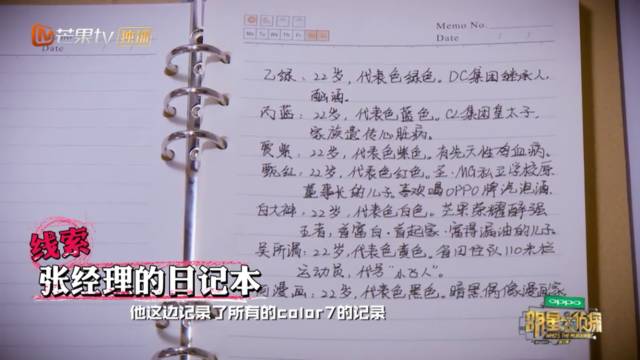 芒果tv 独播
Memo No.
Mo Tu We Th Fr Sa Su
Date
Date
乙绿：22岁，代表色绿色。DC集团继承人，
酗酒。
丙蓝：22岁，代表色蓝色。CL集团皇太子，
家族遗传心脏病。
贾紫：22岁，代表色紫色。有先天性败血病。
甄红：22岁，代表色红色。圣·MG私立学校原
董事长的儿子。喜欢喝OPPO牌汽泡酒
白大神：22岁，代表色白色。芒果荣耀醉强
王者
富得漏油的儿子
吴所谓：22岁，代表色黄色。省田径队110米栏
运动员，代号“小飞人”。
漫画：22岁，代表色黑色。暗黑偶像漫画家
线索
张经理的日记本
他这边记录了所有的color7的记录
oppo
明星大侦探
WHO'S THE MURDERER